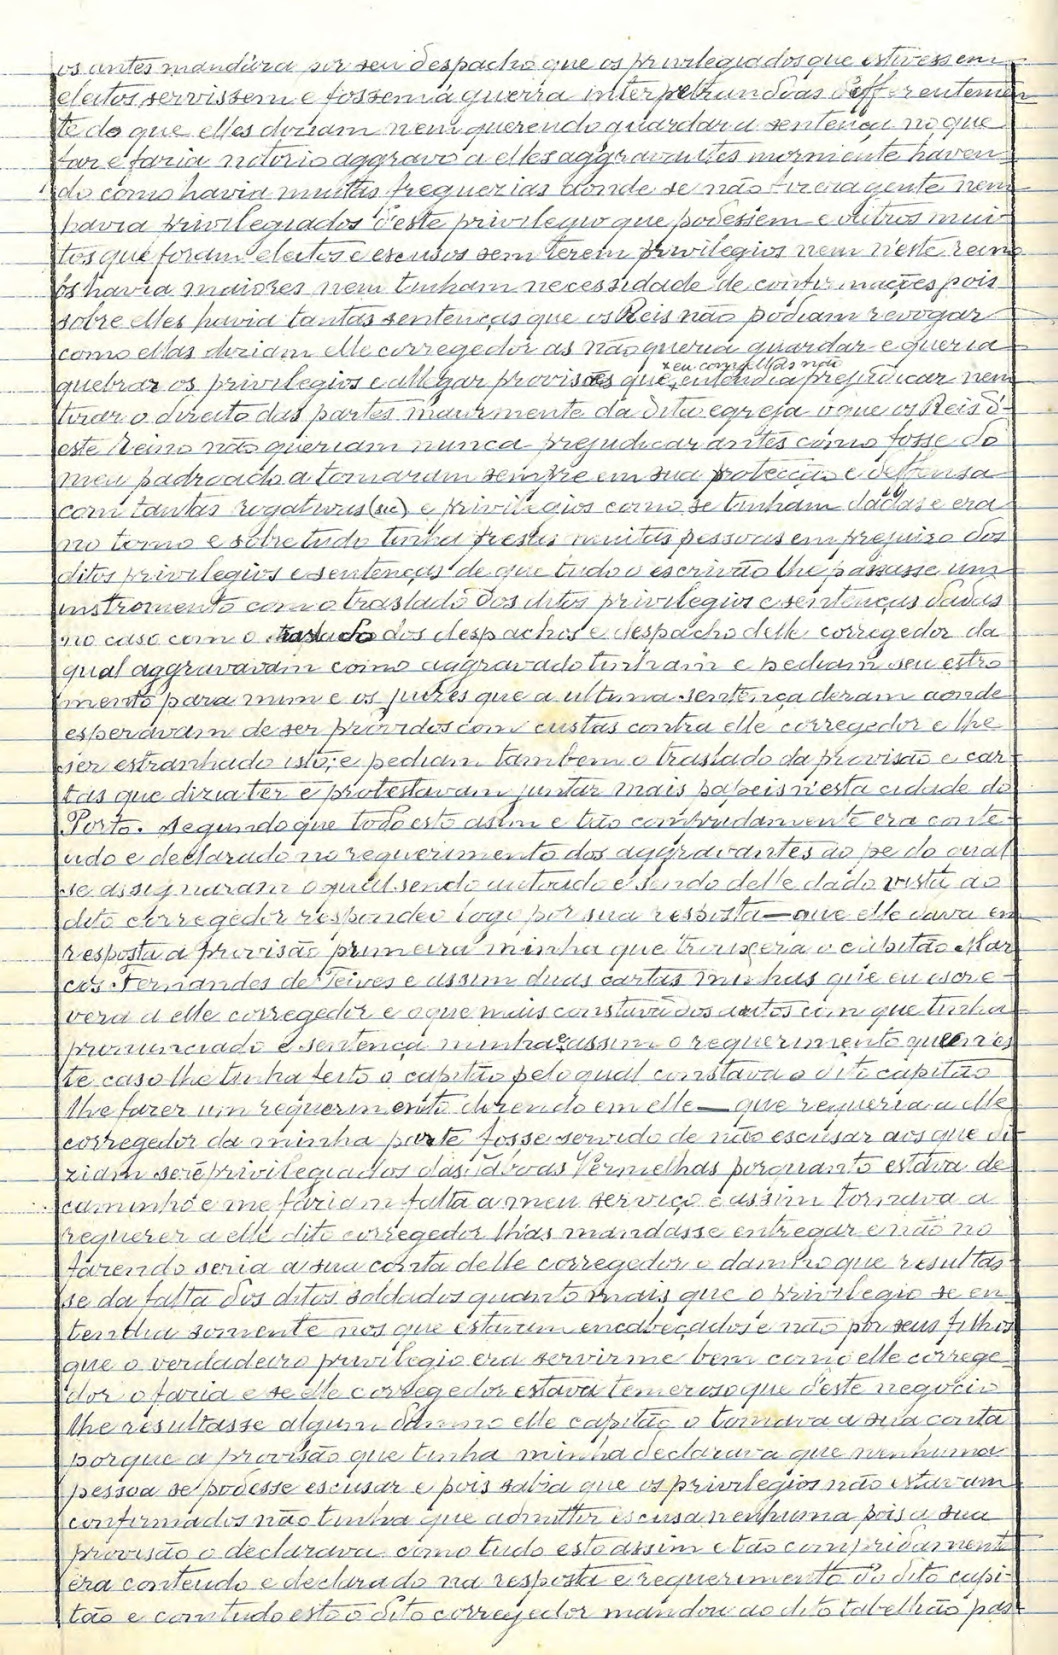 os antes mandára por seu despacho que os privilegiados que estivessem
eleitos servissem e fossem á guerra interpetrandoas differentemen
te do que elles diziam nem querendo guardar a sentença no que
far e faria notorio aggravo a elles aggravantes mormente haven
do como havia muitas freguezias aonde se não tirera gente nem
havia privilegiados d'este privilegio que podessem e outros mui
tos que foram eleitos e escusos sem terem privilegios nem n'este reino
os havia maiores nem tinham necessidade de confirmações pois
sobre elles havia tantas sentenças que os Reis não podiam revogar
como ellas diziam elle corregedor as não queria guardar e queria
quebrar os privilegios e allegar provisões que eu com ellas não entendia prejudicar nem
tirar o direito das partes maiormente da dita egreja o que os Reis d'
este Reino não queriam nunca prejudicar antes como fosse do
meu padroado a tomaram sempre em sua protecção e deffensa
com tantas rogaturas (sic) e privilegios como se tinham dadas e era
no tomo e sobre tudo tinha presas muitas pessoas em prejuizo dos
ditos privilegios e sentenças de que tudo o escrivão lhe passasse um
instromento com o traslado dos ditos privilegios e sentenças dadas
no caso com o traslado dos despachos e despacho delle corregedor da
qual aggravavam como aggravado tinham e pediam seu estro
mento para mim e os juizes que a ultima sentença deram aonde
esperavam de ser providos com custas contra elle corregedor e lhe
ser estranhado isto; e pediam tambem o traslado da provisão e car-
tas que dizia ter e protestavam juntar mais papeis n'esta cidade do
Porto. Segundo que todo esto asim e tão compridamente era conte-
udo e declarado no requerimento dos aggravantes ao pe do qual
se assignaram o qual sendo autoado e sendo delle dado vista ao
dito corregedor respondeo logo por sua resposta — que elle dava em
resposta a provisão primeira minha que trouxera o capitão Mar
cos Fernandes de Teives e assim duas cartas minhas que eu escre-
vera a elle corregedor e o que mais constava dos autos com que tinha
pronunciado e sentença minha e assim o requerimento que n'es
te caso lhe tinha feito o capitão pelo qual constava o dito capitão
lhe fazer um requerimento dizendo em elle — que requeria a elle
corregedor da minha parte fosse servido de não escusar aos que di
ziam ser privilegiados das Taboas Vermelhas porquanto estava de
caminho e me fariam falta a meu serviço e assim tornava a
requerer a elle dito corregedor lh'as mandasse entregar e não no
fazendo seria a sua conta delle corregedor o damno que resultas-
se da falta dos ditos soldados quanto mais que o privilegio se en-
tendia somente nos que estavam encabeçados e não por seus filhos
que o verdadeiro privilegio era servirme bem como elle correge-
dor o faria e se elle corregedor estava temeroso que d'este negocio
lhe resultasse algum damno elle capitão o tomava a sua conta
porque a provisão que tinha minha declarava que nenhuma
pessoa se podesse escusar e pois sabia que os privilegios não estavam
confirmados não tinha que admittir escusa nenhuma pois a sua
provisão o declarava como tudo esto assim e tão compridamente
era conteudo e declarado na resposta e requerimento do dito capi-
tão e com tudo esto o dito corregedor mandou ao dito tabelião pas-